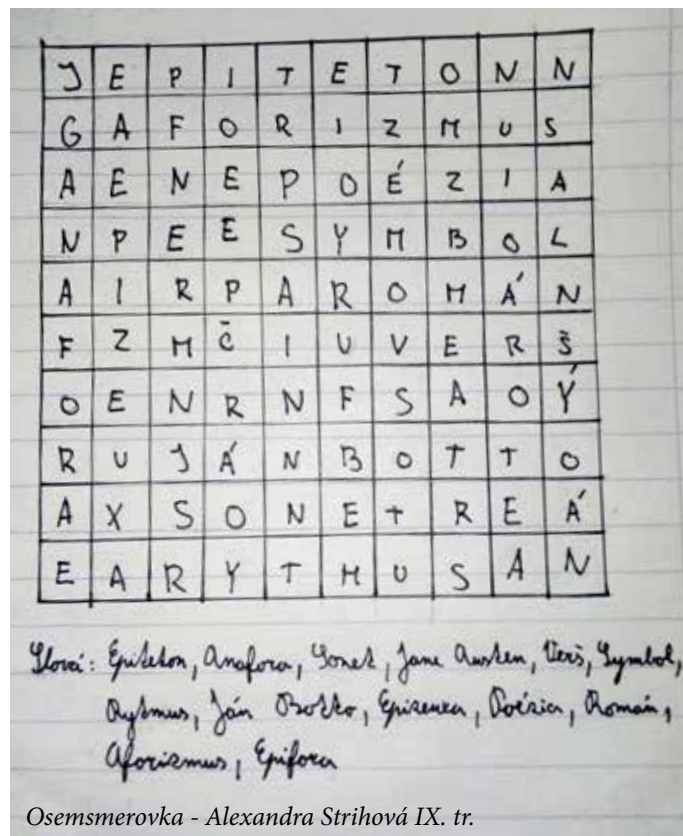 J E P I T E T O N N
G A F O R I Z M U S
A E N E P O É Z I A
N P E E S Y M B O L
A I R P A R O M Á N
F Z M Č I U V E R Š
O E N R N F S A O Ý
R U J Á N B O T T O
A X S O N E T R E Á
E A R Y T M U S A N
Slová: Epiteton, Anafora, Sonet, Jane Austen, Verš, Symbol,
Rytmus, Ján Botto, Epizeuxa, Poézia, Román,
Aforizmus, Epifora
Osemsmerovka - Alexandra Strihová IX. tr.